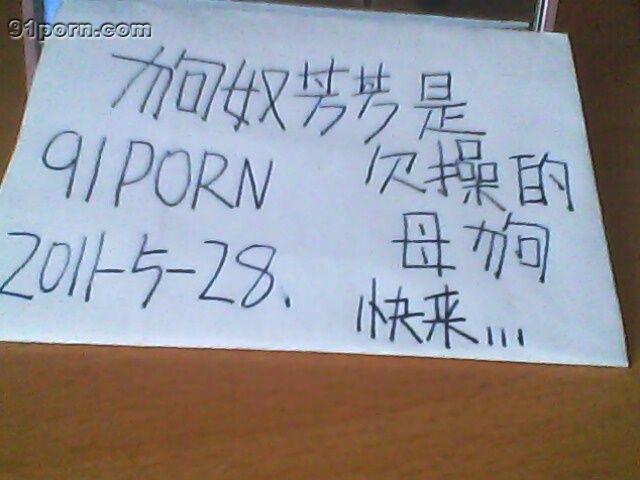 91porn.com
狗奴芳芳是
91PORN 欠操的
2011-5-28. 母狗
快来...